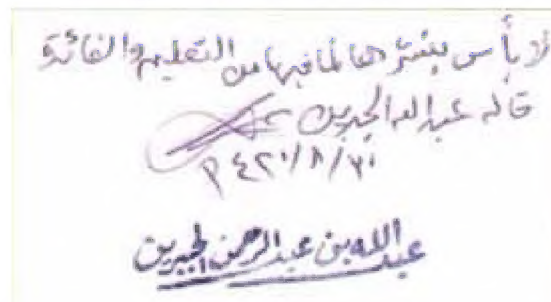 لا بأس بنشرها لما فيها من التعليم والفائدة
قاله عبدالله الجبرين
عبدالله بن عبدالرحمن الجبرين